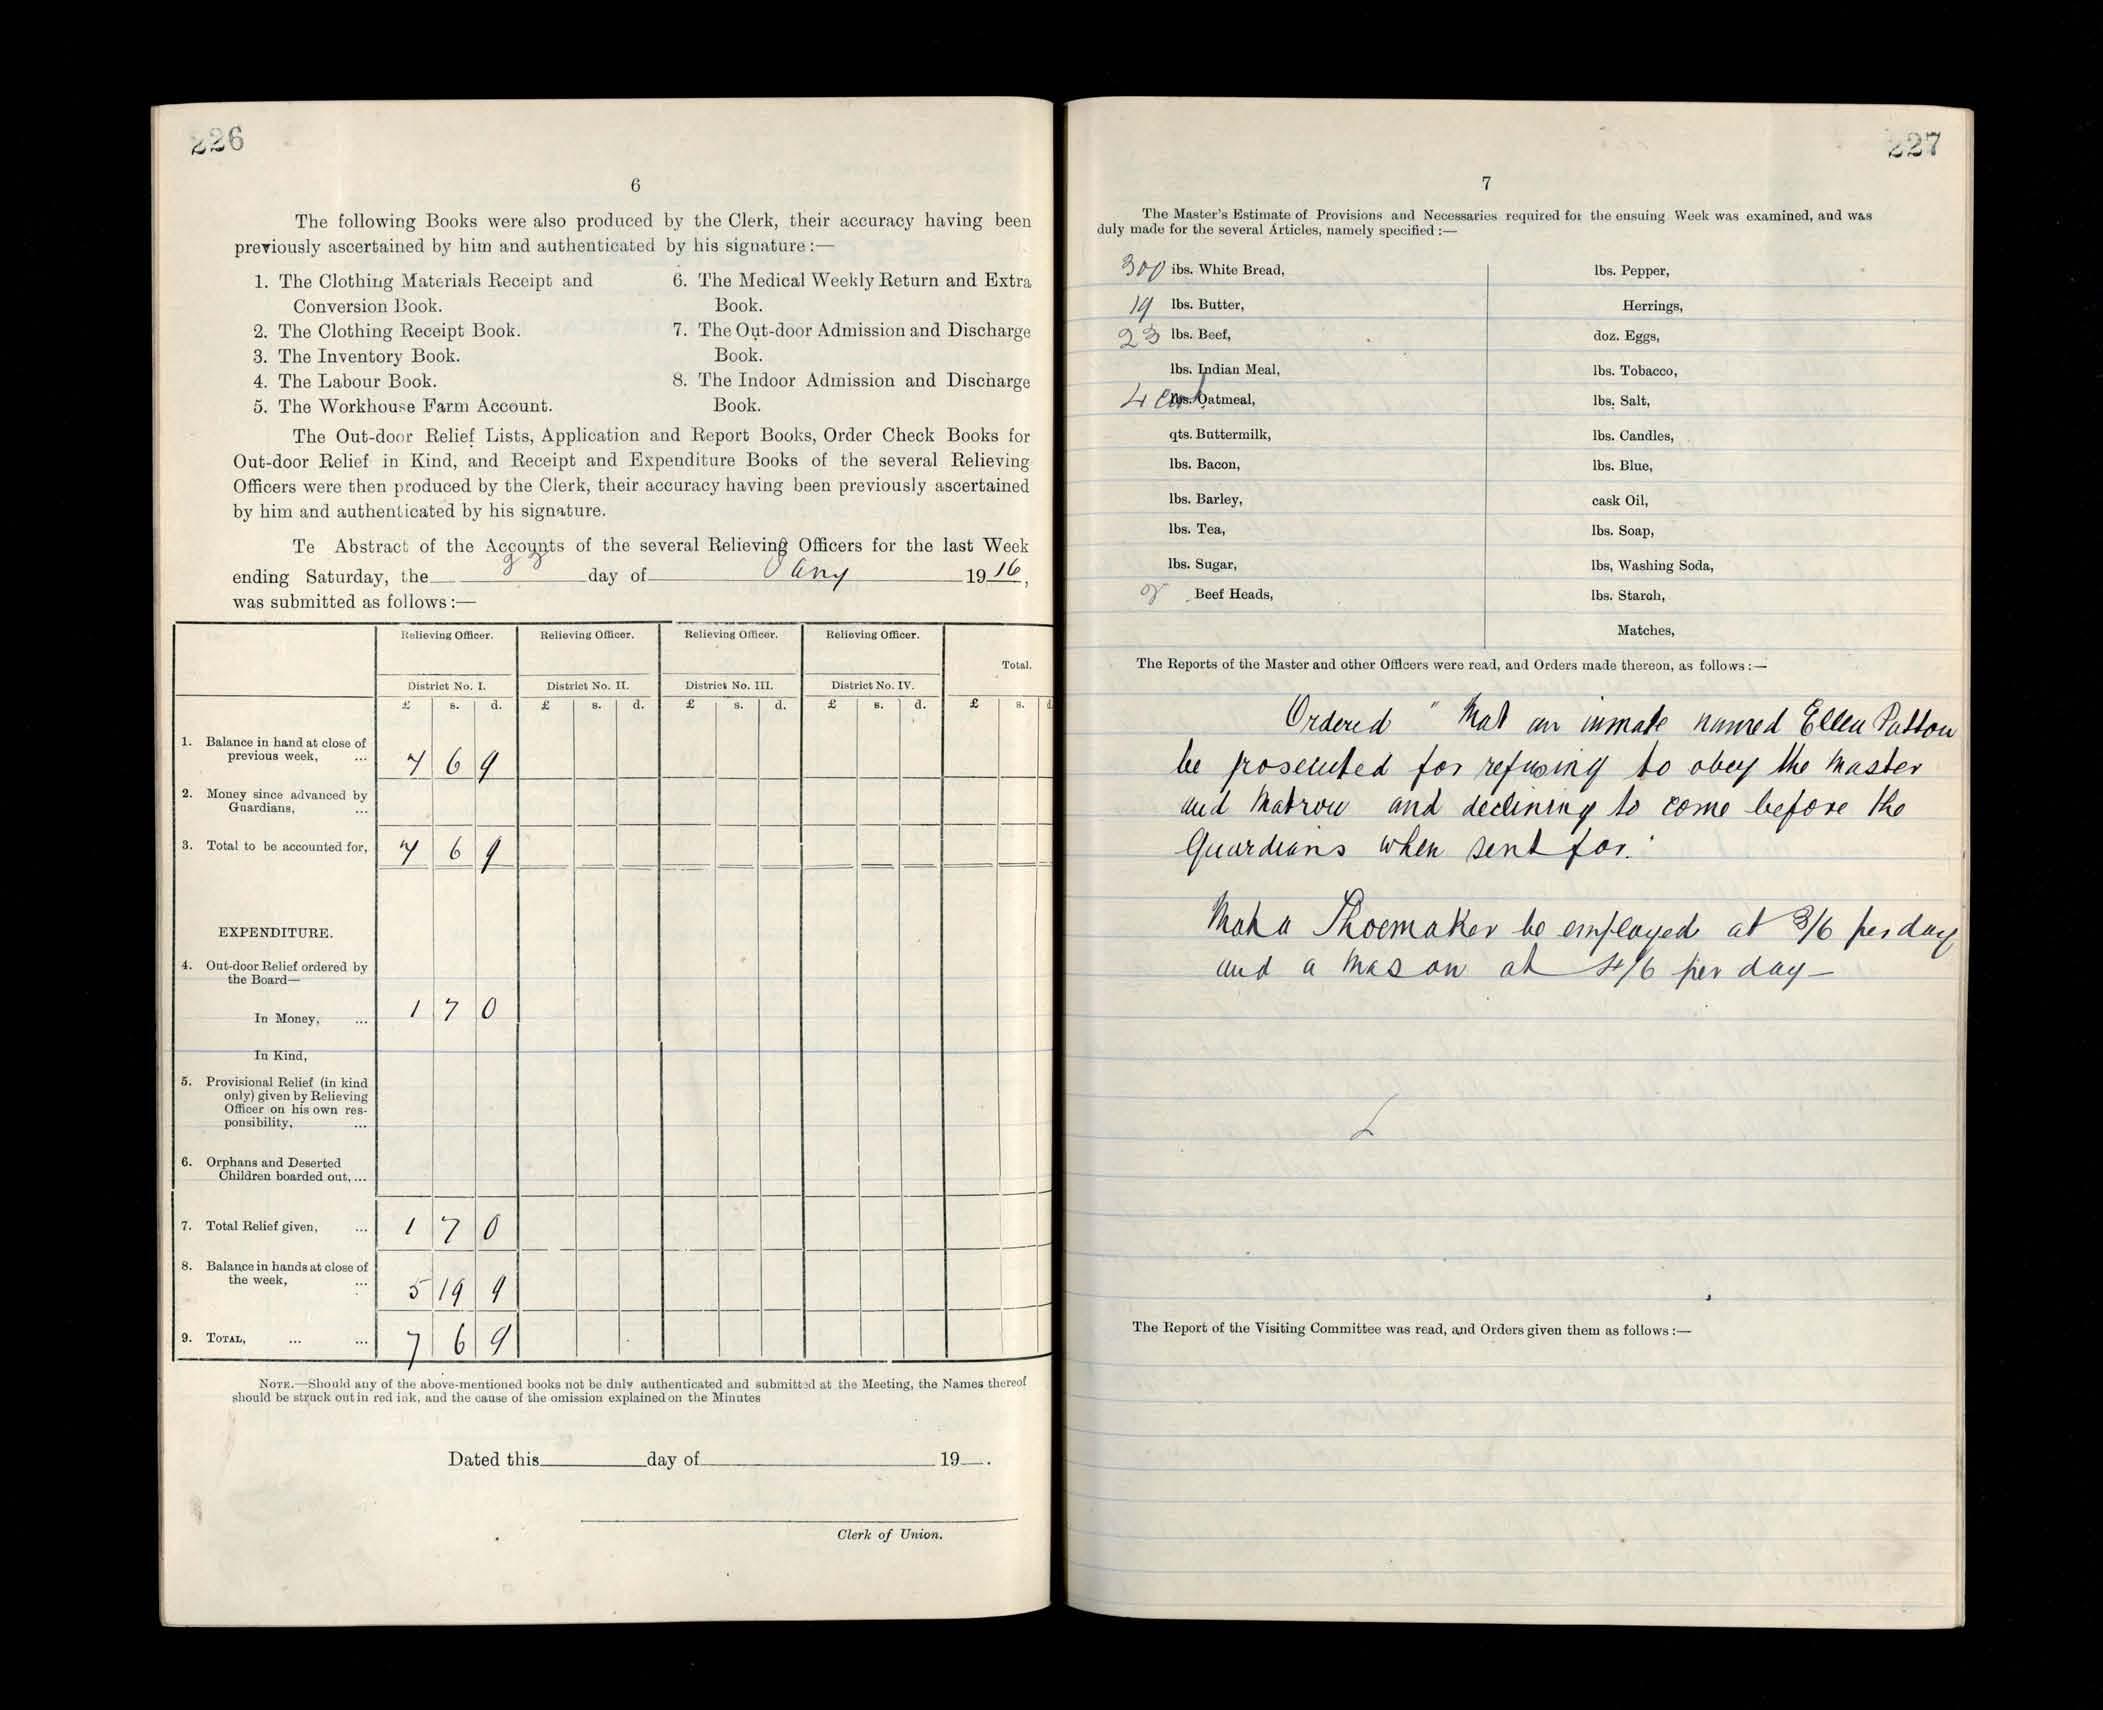 226
6
The following Books were also produced by the Clerk, their accuracy having been
previously ascertained by him and authenticated by his signature :—
1. The Clothing Materials Receipt and
Conversion Book.
2. The Clothing Receipt Book.
3. The Inventory Book.
4. The Labour Book.
5. The Workhouse Farm Account.
6. The Medical Weekly Return and Extra
Book.
7. The Out-door Admission and Discharge
Book.
8. The Indoor Admission and Discharge
Book.
The Out-door Relief Lists, Application and Report Books, Order Check Books for
Out-door Relief in Kind, and Receipt and Expenditure Books of the several Relieving
Officers were then produced by the Clerk, their accuracy having been previously ascertained
by him and authenticated by his signature.
Te Abstract of the Accounts of the several Relieving Officers for the last Week
ending Saturday, the day of Jany 1916,
was submitted as follows :—
Relieving Officer. Relieving Officer. Relieving Officer. Relieving Officer.
Total.
District No. I. District No. II. District No. III. District No. IV.
£ s. d. £ s. d. £ s. d. £ s. d. £ s. d.
1. Balance in hand at close of
previous week, ... 7 6 9
2. Money since advanced by
Guardians, ...
3. Total to be accounted for, 7 6 9
EXPENDITURE.
4. Out-door Relief ordered by
the Board—
In Money, ... 1 7 0
In Kind,
5. Provisional Relief (in kind
only) given by Relieving
Officer on his own res-
ponsibility, ...
6. Orphans and Deserted
Children boarded out, ...
7. Total Relief given, ... 1 7 0
8. Balance in hands at close of
the week, ... 5 19 9
9. TOTAL, ... ... 7 6 9
NOTE.—Should any of the above-mentioned books not be duly authenticated and submitted at the Meeting, the Names thereof
should be struck out in red ink, and the cause of the omission explained on the Minutes
Dated this day of 19 .
Clerk of Union.
227
7
The Master's Estimate of Provisions and Necessaries required for the ensuing Week was examined, and was
duly made for the several Articles, namely specified :—
300 lbs. White Bread,
19 lbs. Butter,
23 lbs. Beef,
lbs. Indian Meal,
4 cwt. lbs. Oatmeal,
qts. Buttermilk,
lbs. Bacon,
lbs. Barley,
lbs. Tea,
lbs. Sugar,
Beef Heads,
lbs. Pepper,
Herrings,
doz. Eggs,
lbs. Tobacco,
lbs. Salt,
lbs. Candles,
lbs. Blue,
cask Oil,
lbs. Soap,
lbs, Washing Soda,
lbs. Starch,
Matches,
The Reports of the Master and other Officers were read, and Orders made thereon, as follows :—
Ordered "That an inmate named Ellen Patton
be prosecuted for refusing to obey the Master
and Matron and declining to come before the
Guardians when sent for."
That a Shoemaker be employed at 3/6 per day
and a Mason at 4/6 per day —
The Report of the Visiting Committee was read, and Orders given them as follows :—